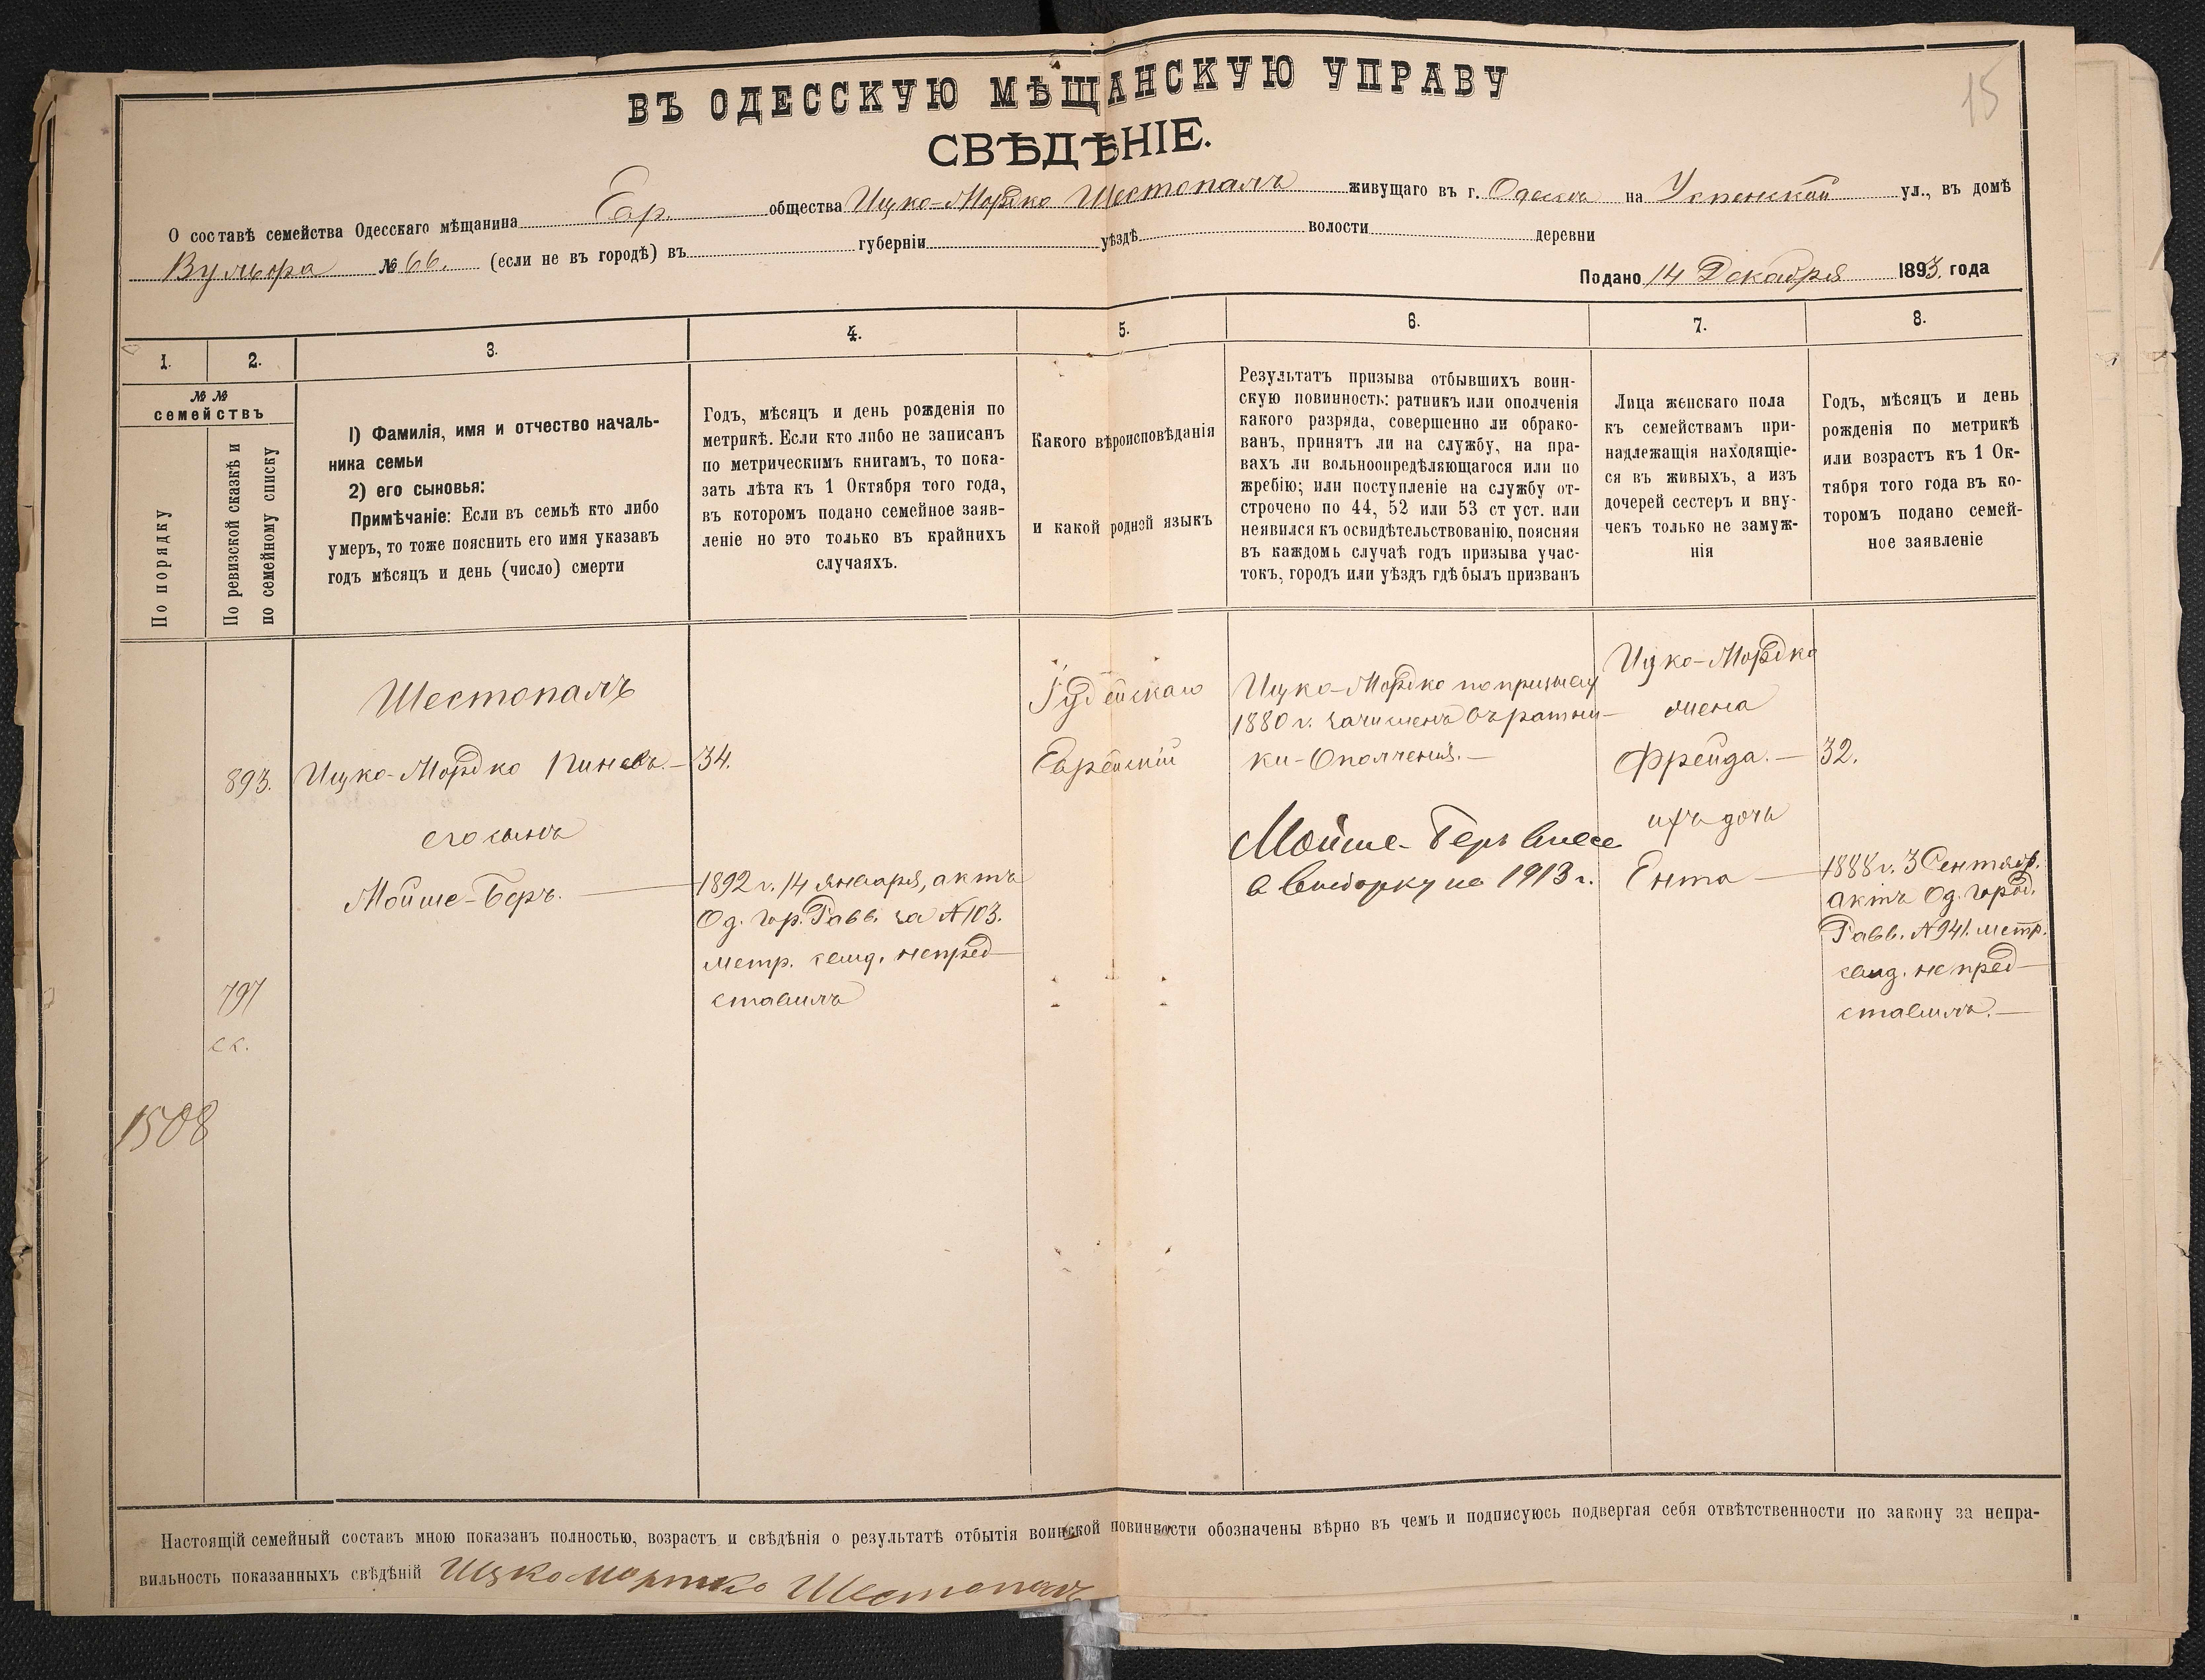 15
ВЪ ОДЕССКУЮ МѢЩАНСКУЮ УПРАВУ
СВѢДѢНІЕ.
О составѣ семейства Одесскаго мѣщанина Евр. общества Ицко-Мордко Шестопалъ живущаго въ г. Одессѣ на Успенской ул., въ домѣ
№ 66. (если не въ городѣ) въ губерніи уѣздѣ волости деревни
Подано 14 Декабря 1893. года
1. 2. 3. 4. 5. 6. 7. 8.
№ №
семействъ
По порядку
По ревизской сказкѣ и
по семейному списку
1) Фамилія, имя и отчество началь-
ника семьи
2) его сыновья:
Примѣчаніе: Если въ семьѣ кто либо
умеръ, то тоже пояснить его имя указавъ
годъ мѣсяцъ и день (число) смерти
Годъ, мѣсяцъ и день рожденія по
метрикѣ. Если кто либо не записанъ
по метрическимъ книгамъ, то пока-
зать лѣта къ 1 Октября того года,
въ которомъ подано семейное заяв-
леніе но это только въ крайнихъ
случаяхъ.
Какого вѣроисповѣданія
и какой родной языкъ
Результатъ призыва отбывшихъ воин-
скую повинность: ратникъ или ополченія
какого разряда, совершенно ли обрако-
ванъ, принятъ ли на службу, на пра-
вахъ ли вольноопредѣляющагося или по
жребію; или поступленіе на службу от-
строчено по 44, 52 или 53 ст уст. или
неявился къ освидѣтельствованію, поясняя
въ каждомъ случаѣ годъ призыва учас-
токъ, городъ или уѣздъ гдѣ былъ призванъ
Лица женскаго пола
къ семействамъ при-
надлежащія находящіе-
ся въ живыхъ, а изъ
дочерей сестеръ и вну-
чекъ только не замуж-
нія
Годъ, мѣсяцъ и день
рожденія по метрикѣ
или возрастъ къ 1 Ок-
тября того года въ ко-
торомъ подано семей-
ное заявленіе
893.
797
ск.
1508
Шестопалъ
Ицко-Мордко Пиневъ.—
его сынъ
Мойше-Беръ.
34.
1892 г. 14 января, актъ
Од. гор. Равв. за №103.
метр. свид. непред-
ставилъ
Іудейскаго
Еврейскій
Ицко-Мордко по призыву
1880 г. зачисленъ въ ратни-
ки-Ополченія.—
Мойше-Беръ внесе
в выборку на 1913 г.
Ицко-Мордко
жена
Фрейда.—
ихъ дочь
Ента
32.
1888 г. 3 Сентябр.
актъ Од. город.
Равв. №941. метр.
свид. не пред-
ставилъ.—
Настоящій семейный составъ мною показанъ полностью, возрастъ и свѣдѣнія о результатѣ отбытія воинской повинности обозначены вѣрно въ чемъ и подписуюсь подвергая себя отвѣтственности по закону за непра-
вильность показанныхъ свѣдѣній Ицко Мортко Шестопалъ